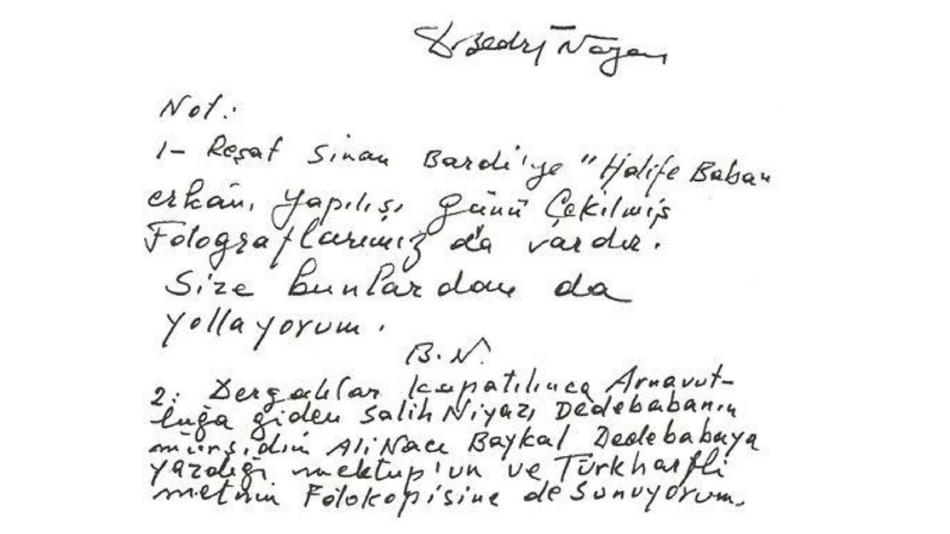 Dr Bedri Noyan
Not:
1- Reşat Sinan Bardi'ye "Halife Baban
erkânı yapılışı günü Çekilmiş
Fotograflarımız da vardır.
Size bunlardan da
yollayorum.
B.N.
2: Dergahlar kapatılınca Arnavut-
luğa giden Salih Niyazi Dedebabanın
mürşidim Ali Naci Baykal Dedebabaya
yazdığı mektup'un ve Türkharfli
metnin Fotokopisine de sunuyorum.